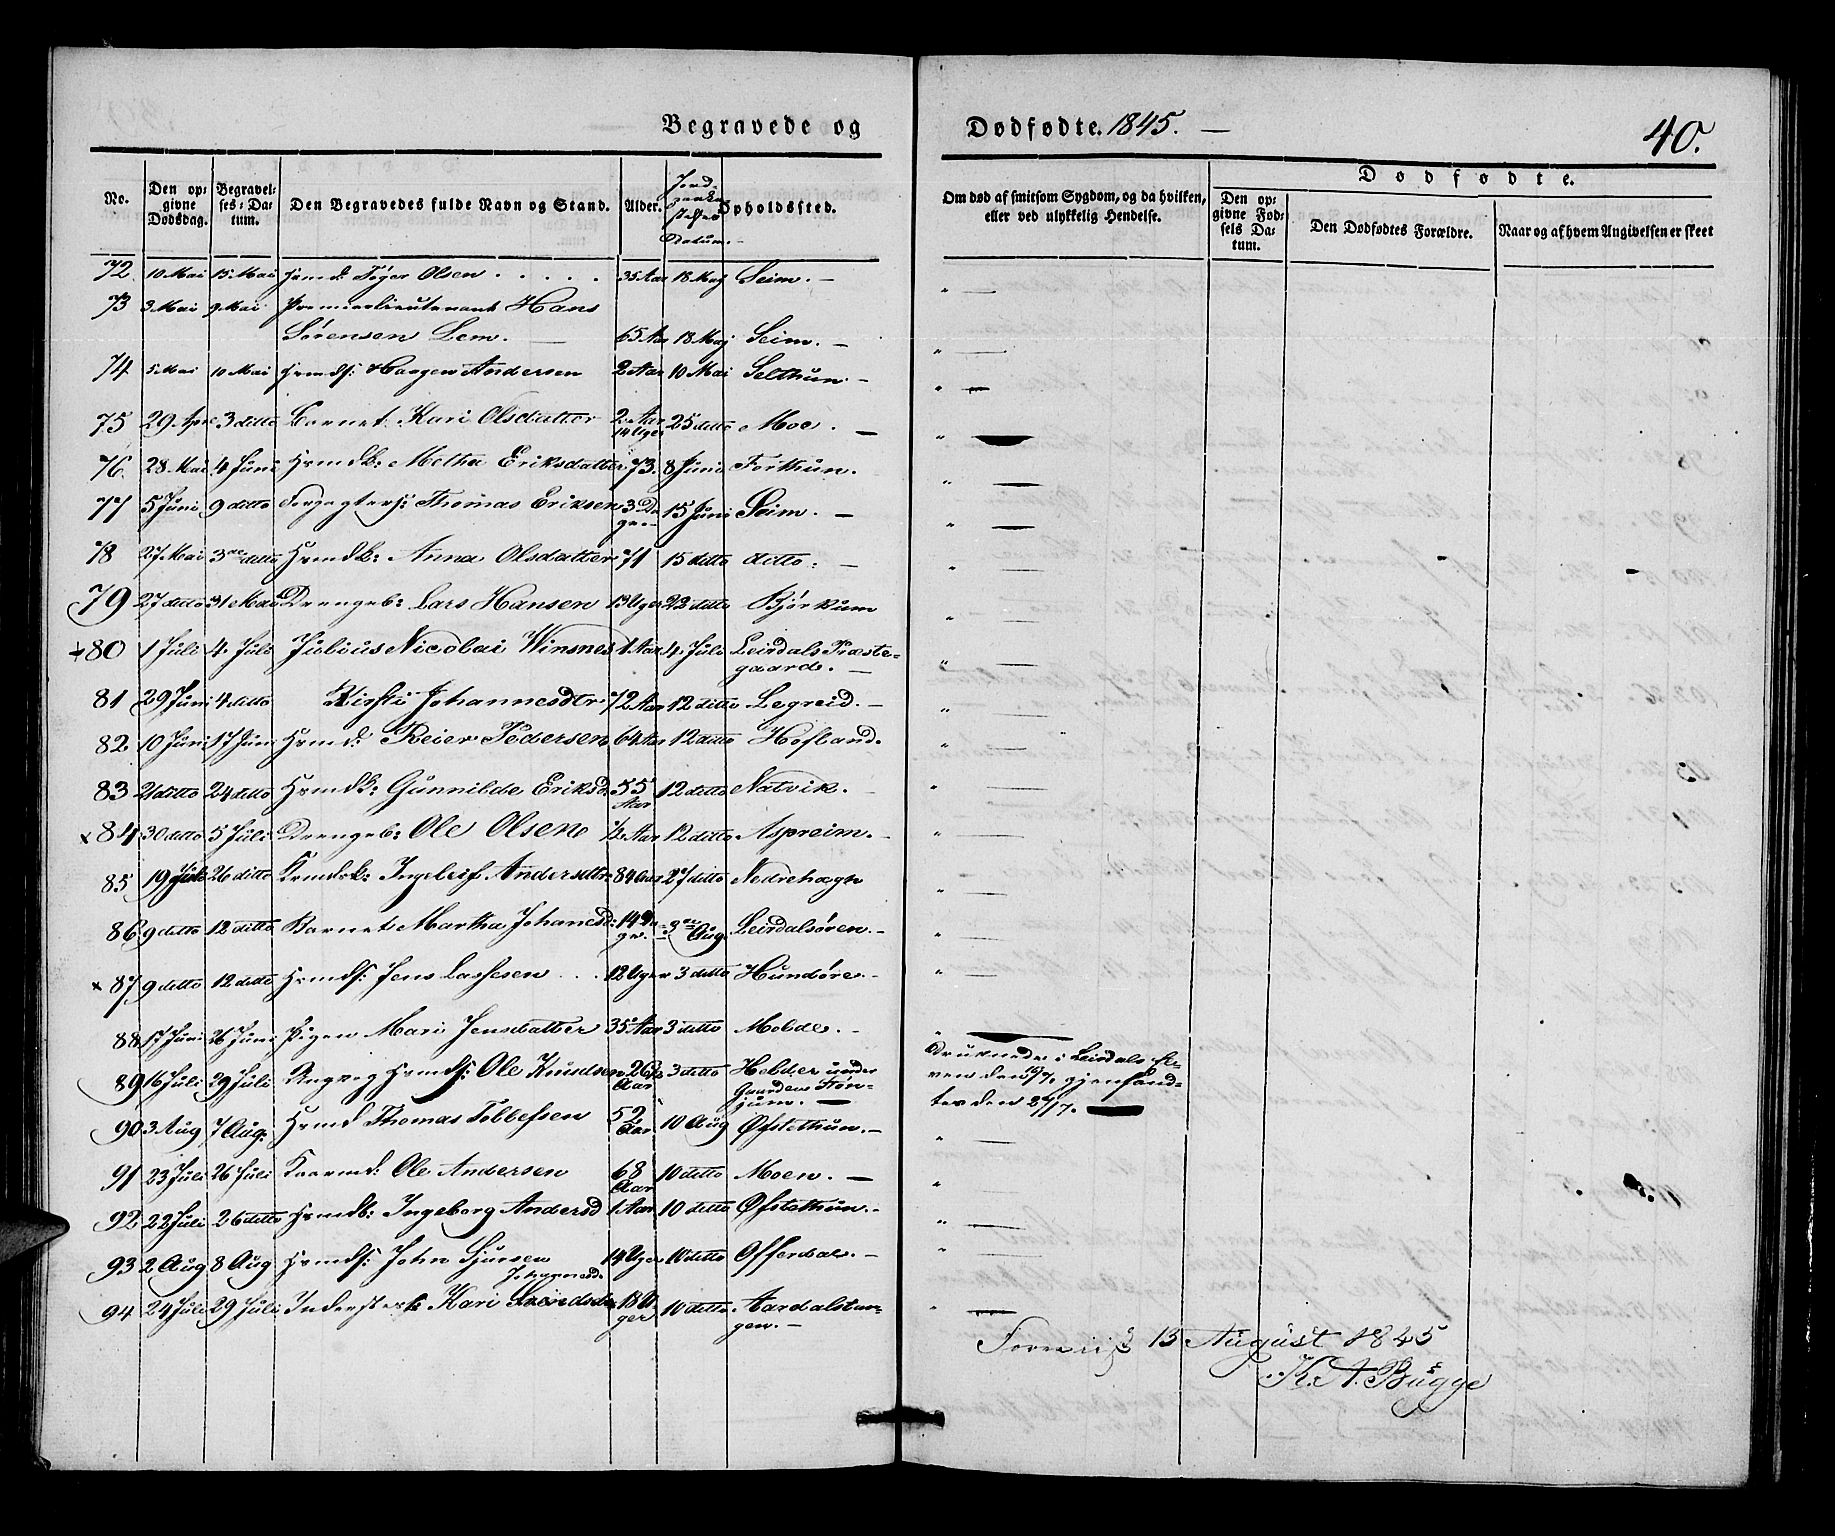 Begravede og
Dødfødte. 1845. —
40.
No.
Den op-
givne
Dødsdag.
Begravel-
ses-Da-
tum.
Den Begravedes fulde Navn og Stand.
Alder.
Jord-
paaka-
stelses
Datum.
Opholdssted.
Om død af smitsom Sygdom, og da hvilken,
eller ved ulykkelig Hendelse.
Dødfødte.
Den op-
givne Fød-
sels Da-
tum.
Den Dødfødtes Forældre.
Naar og af hvem Angivelsen er skeet
72 10 Mai 15 Mai Hrmd: Olsen 35 Aar 18 Maj Seim. —
73 3 Mai 9 Mai Premierlieutenant Hans
Sørensen Lem. — 65 Aar 18 Maj Seim. —
74 5 Mai 10 Mai Hrmds: Haagen Andersen 2 Aar 10 Mai Selthun. —
75 29 Apr 3 ditto Barnet Kari Olsdatter 2 Aar 14 Uger 25 ditto Moe. —
76. 28 Mai 4 Juni Hrmdk: Metha Eriksdatter 73. 8 Juni Forthun.
77 5 Juni 9 ditto Forpagters: Thomas Eriksen 3 Da- ge 15 Juni Seim. —
78 27 Mai 3 ditto Hrmdk: Anna Olsdatter 71 15 ditto ditto: —
79 27 ditto 31 Mai Drengeb: Lars Hansen 13 Uger 22 ditto Bjørkum
80 1 Juli 4 Juli Julius Nicolai Winsnes 1 Aar 4 Juli Leirdals Præste-
gaard. —
81 29 Juni 4 ditto Kirsti Johannesdtr 72 Aar 12 ditto Legreid. —
82. 10 Juni 17 Juni Hrmd: Reier Pedersen 64 Aar 12 ditto Hofland.
83 21 ditto 24 ditto Hrmdk: Gunnilde Eriksd 55 Aar 12 ditto Natvik. —
x 84 30 ditto 5 Juli Drengeb: Ole Olsen ½ Aar 12 ditto Aspreim. —
85 19 Juli 26 ditto Ingeleif Andersdtr 84 Aar 27 ditto Nedrehægn
86 9 ditto 12 ditto Barnet Martha Johanesd: 14 Da- ge. 3 Aug. Leirdalsøren. —
x 87 9 ditto 12 ditto Hrmds: Jens Lassesen 12 Uger 3 ditto Hundøre. —
88 17 Juni 26 Juni Pigen Mari Jensdatter 35 Aar 3 ditto Molde. —
89 16 Juli 29 Juli Ungkrig Hrmds: Ole Knudsen 26 Aar 3 ditto Hølder under
Gaarden Tøn-
jum. —
Druknede i Leirdals El-
ven den 16/7. gjenfand-
tes den 27/7. —
90 3 Aug 7 Aug: Hrmd Thomas Tollefsen 52 Aar 10 Aug Øfstethun. —
91 23 Juli 26 Juli Ole Andersen 68 Aar 10 ditto Moen. —
92 22 Juli 26 ditto Hrmdb: Ingeborg Andersd 1 Aar 10 ditto Øfstethun. —
93 2 Aug 8 Aug Hrmds: John Sjursen 14 Uger 10 ditto Offerdal. —
Johannesd.
94 24 Juli 29 Juli Inderst Kari 18 U- ger 10 ditto Aardalstan-
gen. —
Foreviist 13 August 1845
K. A. Bugge